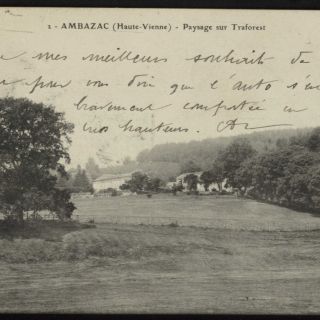 1 - AMBAZAC (Haute-Vienne) - Paysage sur Traforest
mes meilleurs souhaits de
pour vous dire que l'auto s'est
bravement comportée en
hauteurs.